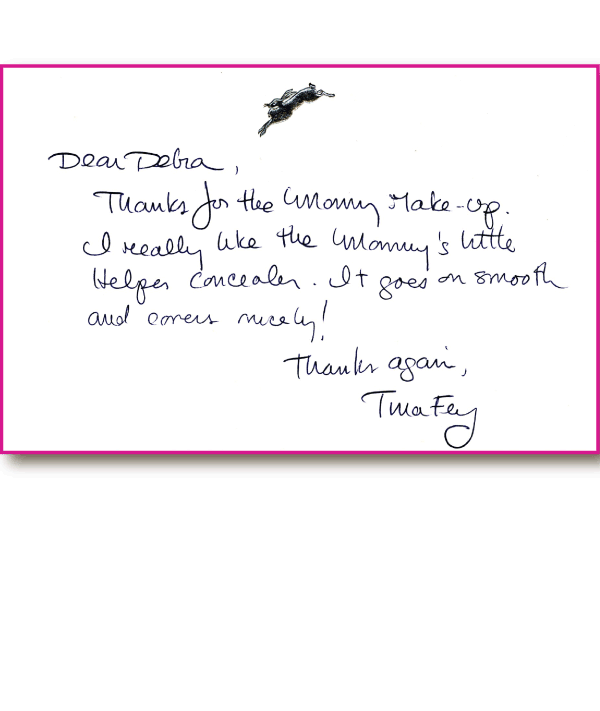 Dear Debra,
Thanks for the Mommy Make-up.
I really like the Mommy's Little
Helper Concealer. It goes on smooth
and covers nicely!
Thanks again,
Tina Fey